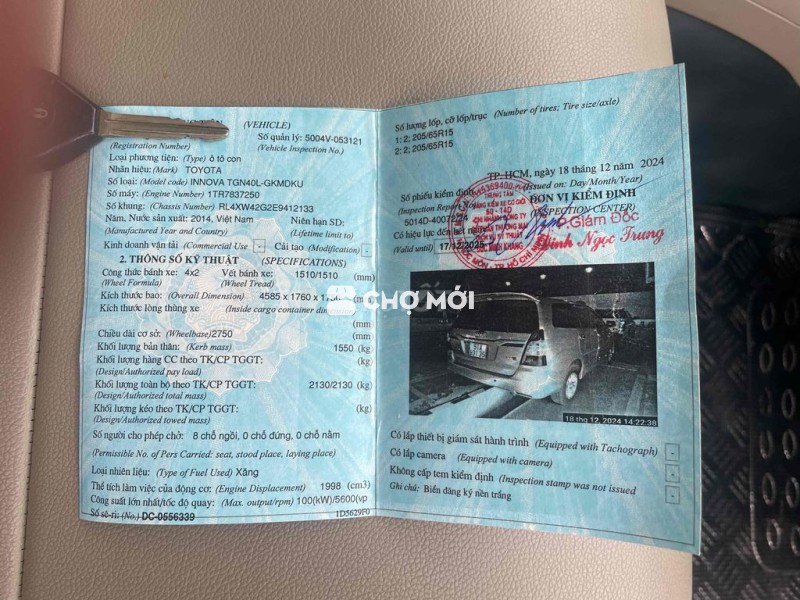 (VEHICLE)
Số quản lý: 5004V-053121
(Registration Number) (Vehicle Inspection No.)
Loại phương tiện: (Type) ô tô con
Nhãn hiệu: (Mark) TOYOTA
Số loại: (Model code) INNOVA TGN40L-GKMDKU
Số máy: (Engine Number) 1TR7837250
Số khung: (Chassis Number) RL4XW42G2E9412133
Năm, Nước sản xuất: 2014, Việt Nam Niên hạn SD:
(Manufactured Year and Country) (Lifetime limit to)
Kinh doanh vận tải (Commercial Use - Cải tạo (Modification) -
2. THÔNG SỐ KỸ THUẬT (SPECIFICATIONS)
Công thức bánh xe: 4x2 Vết bánh xe: 1510/1510 (mm)
(Wheel Formula) (Wheel Tread)
Kích thước bao: (Overall Dimension) 4585 x 1760 x
Kích thước lòng thùng xe (Inside cargo container
(mm)
Chiều dài cơ sở: (Wheelbase)2750 (mm)
Khối lượng bản thân: (Kerb mass) 1550 (kg)
Khối lượng hàng CC theo TK/CP TGGT: (kg)
(Design/Authorized pay load)
Khối lượng toàn bộ theo TK/CP TGGT: 2130/2130 (kg)
(Design/Authorized total mass)
Khối lượng kéo theo TK/CP TGGT: (kg)
(Design/Authorized towed mass)
Số người cho phép chở: 8 chỗ ngồi, 0 chỗ đứng, 0 chỗ nằm
(Permissible No. of Pers Carried: seat, stood place, laying place)
Loại nhiên liệu: (Type of Fuel Used) Xăng
Thể tích làm việc của động cơ: (Engine Displacement) 1998 (cm3)
Công suất lớn nhất/tốc độ quay: (Max. output/rpm) 100(kW)/5600(vp
Số sê-ri: (No.) DC-0556339 1D5629F0
Số lượng lốp, cỡ lốp/trục (Number of tires; Tire size/axle)
1: 2; 205/65R15
2: 2; 205/65R15
TP-HCM, ngày 18 tháng 12 năm 2024
(Issued on: Day/Month/Year)
Số phiếu kiểm định
(Inspection Report No ĐƠN VỊ KIỂM ĐỊNH
5014D-40072/24 (INSPECTION CENTER)
Có hiệu lực đến hết P.Giám Đốc
(Valid until) 17/12/2025 Đinh Ngọc Trung
CHỢ MỚI
18 thg 12, 2024 14:22:38
Có lắp thiết bị giám sát hành trình (Equipped with Tachograph) -
Có lắp camera (Equipped with camera) -
Không cấp tem kiểm định (Inspection stamp was not issued -
Ghi chú: Biển đăng ký nền trắng